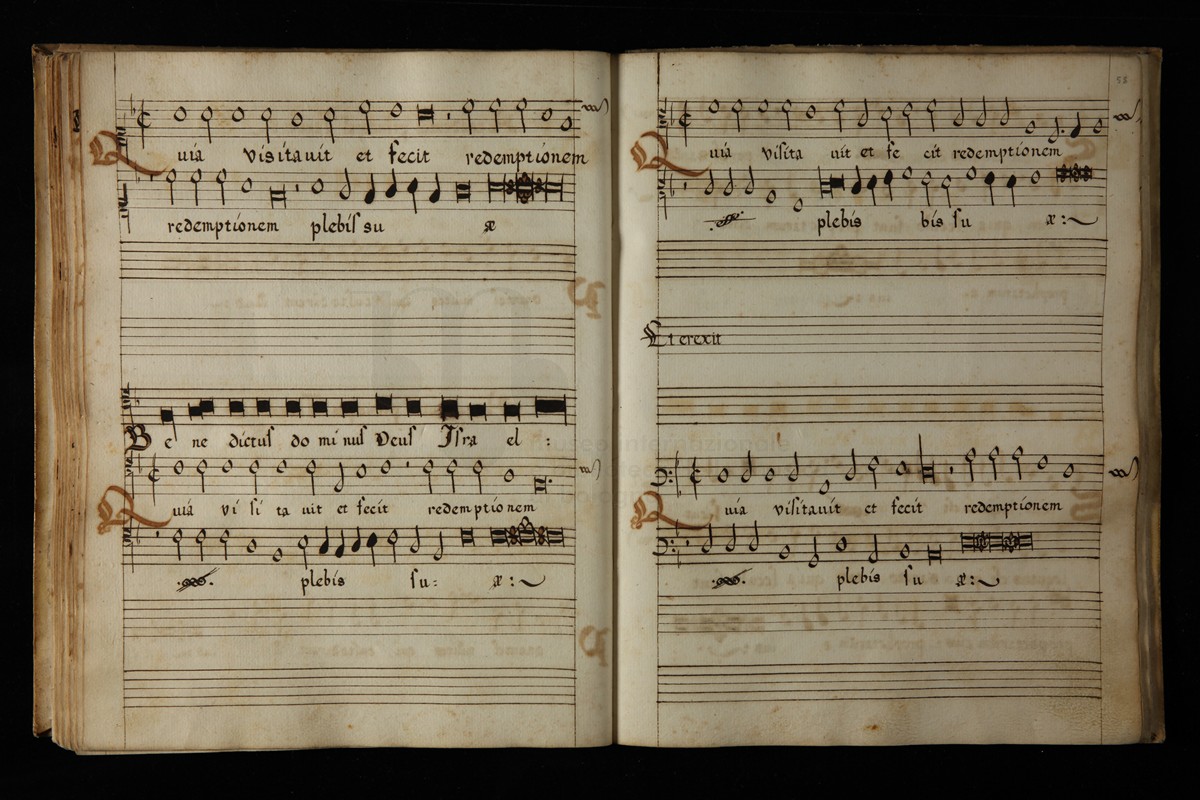 Quia visitauit et fecit redemptionem
redemptionem plebis su æ
Be ne dictus do mi nus Deus Isra el :
Quia vi si ta uit et fecit redemptionem
plebis su: æ :~
53
Quia visita uit et fe cit redemptionem
plebis bis su æ :~
Et erexit
Quia visitauit et fecit redemptionem
plebis su æ :~